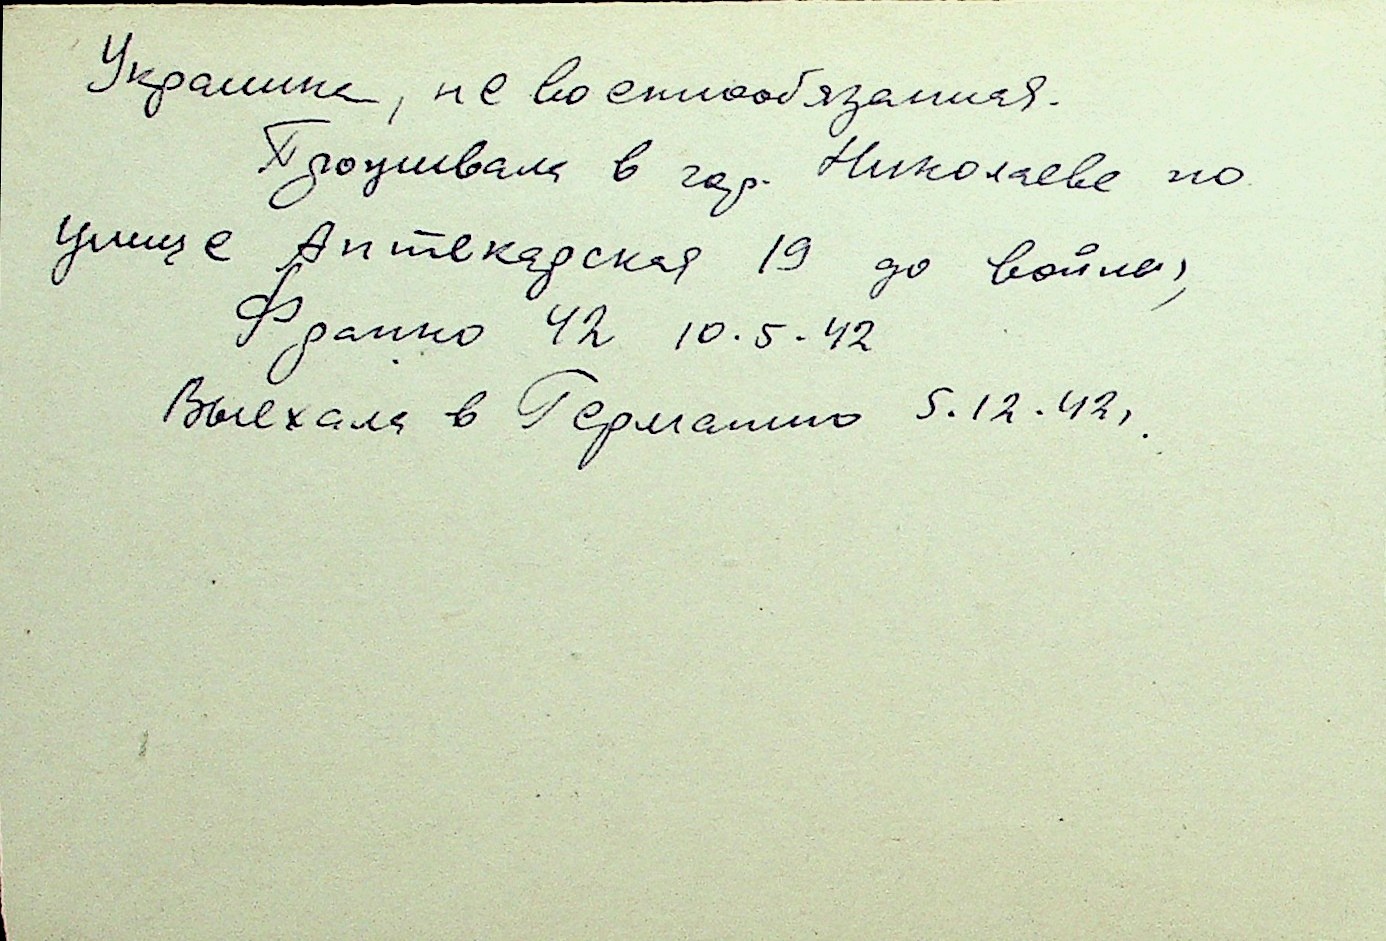 Украинка, не военнообязанная.
Проживала в гор. Николаеве по
улице Аптекарская 19 до войны,
Франко 42 10.5.42
Выехала в Германию 5.12.42,